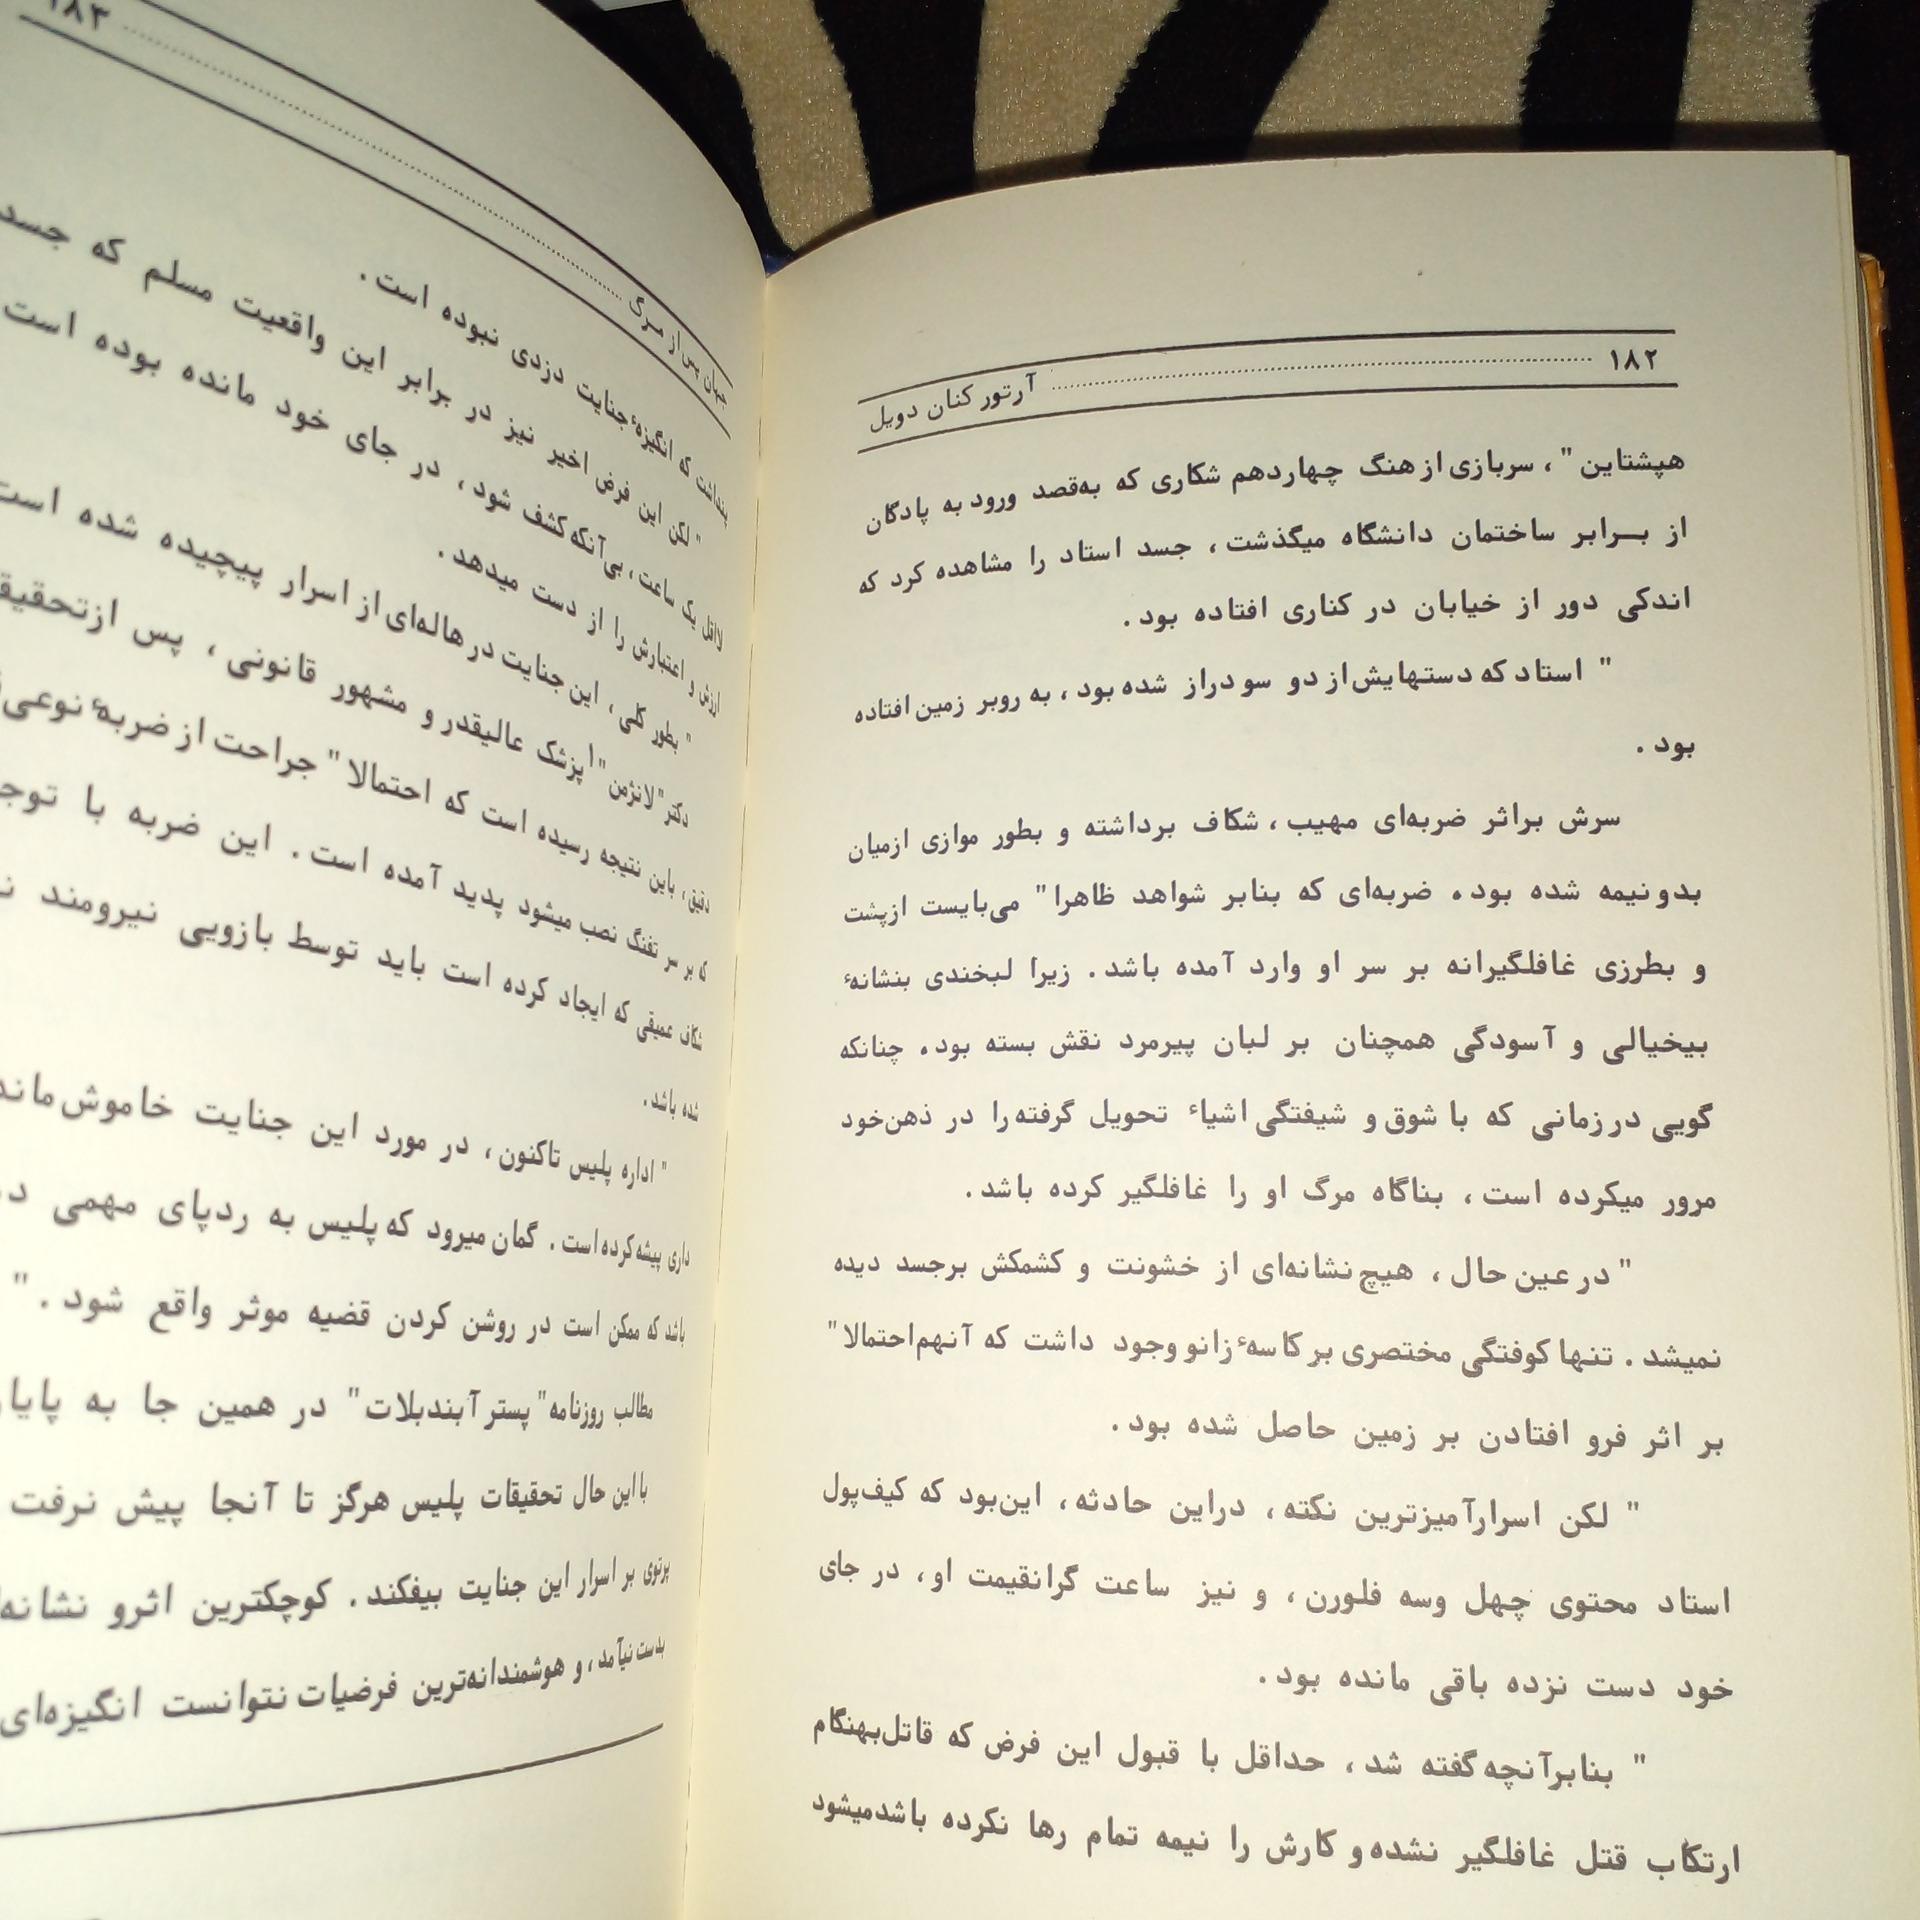 ۱۸۲ آرتور کنان دویل
هپشتاین " ، سربازی از هنگ چهاردهم شکاری که به‌قصد ورود به پادگان
از بـــرابر ساختمان دانشگاه میگذشت ، جسد استاد را مشاهده کرد که
اندکی دور از خیابان در کناری افتاده بود .
" استاد که دستهایش از دو سو دراز شده بود ، به روبر زمین افتاده
بود .
سرش براثر ضربه‌ای مهیب ، شکاف برداشته و بطور موازی ازمیان
بدو نیمه شده بود . ضربه‌ای که بنابر شواهد ظاهرا " می‌بایست ازپشت
و بطرزی غافلگیرانه بر سر او وارد آمده باشد . زیرا لبخندی بنشانهٔ
بیخیالی و آسودگی همچنان بر لبان پیرمرد نقش بسته بود . چنانکه
گویی در زمانی که با شوق و شیفتگی اشیاء تحویل گرفته را در ذهن خود
مرور میکرده است ، بناگاه مرگ او را غافلگیر کرده باشد .
" در عین حال ، هیچ نشانه‌ای از خشونت و کشمکش برجسد دیده
نمیشد . تنها کوفتگی مختصری بر کاسهٔ زانو وجود داشت که آنهم احتمالا "
بر اثر فرو افتادن بر زمین حاصل شده بود .
" لکن اسرارآمیزترین نکته ، دراین حادثه ، این‌بود که کیف‌پول
استاد محتوی چهل وسه فلورن ، و نیز ساعت گرانقیمت او ، در جای
خود دست نزده باقی مانده بود .
" بنابرآنچه گفته شد ، حداقل با قبول این فرض که قاتل بهنگام
ارتکاب قتل غافلگیر نشده و کارش را نیمه تمام رها نکرده باشد میشود
جهان پس از مرگ ۱۸۳
پنداشت که انگیزهٔ جنایت دزدی نبوده است .
" لکن این فرض اخیر نیز در برابر این واقعیت مسلم که جسد
لااقل یک ساعت ، بی‌آنکه کشف شود ، در جای خود مانده بوده است
ارزش و اعتبارش را از دست میدهد .
" بطور کلی ، این جنایت در هاله‌ای از اسرار پیچیده شده است
دکتر " لانژمن "۱ پزشک عالیقدر و مشهور قانونی ، پس از
دقیق ، باین نتیجه رسیده است که احتمالا " جراحت از ضربهٔ نوعی
که بر سر تفنگ نصب میشود پدید آمده است . این ضربه با
شکاف عمیقی که ایجاد کرده است باید توسط بازویی نیرومند
شده باشد .
" اداره پلیس تاکنون ، در مورد این جنایت خاموش
داری پیشه کرده است . گمان میرود که پلیس به ردپای مهمی
باشد که ممکن است در روشن کردن قضیه موثر واقع شود . "
مطالب روزنامه " پستر آبندبلات " در همین جا به
با این حال تحقیقات پلیس هرگز تا آنجا پیش نرفت
پرتوی بر اسرار این جنایت بیفکند . کوچکترین اثرو
بدست نیآمد ، و هوشمندانه‌ترین فرضیات نتوانست انگیزه‌ای